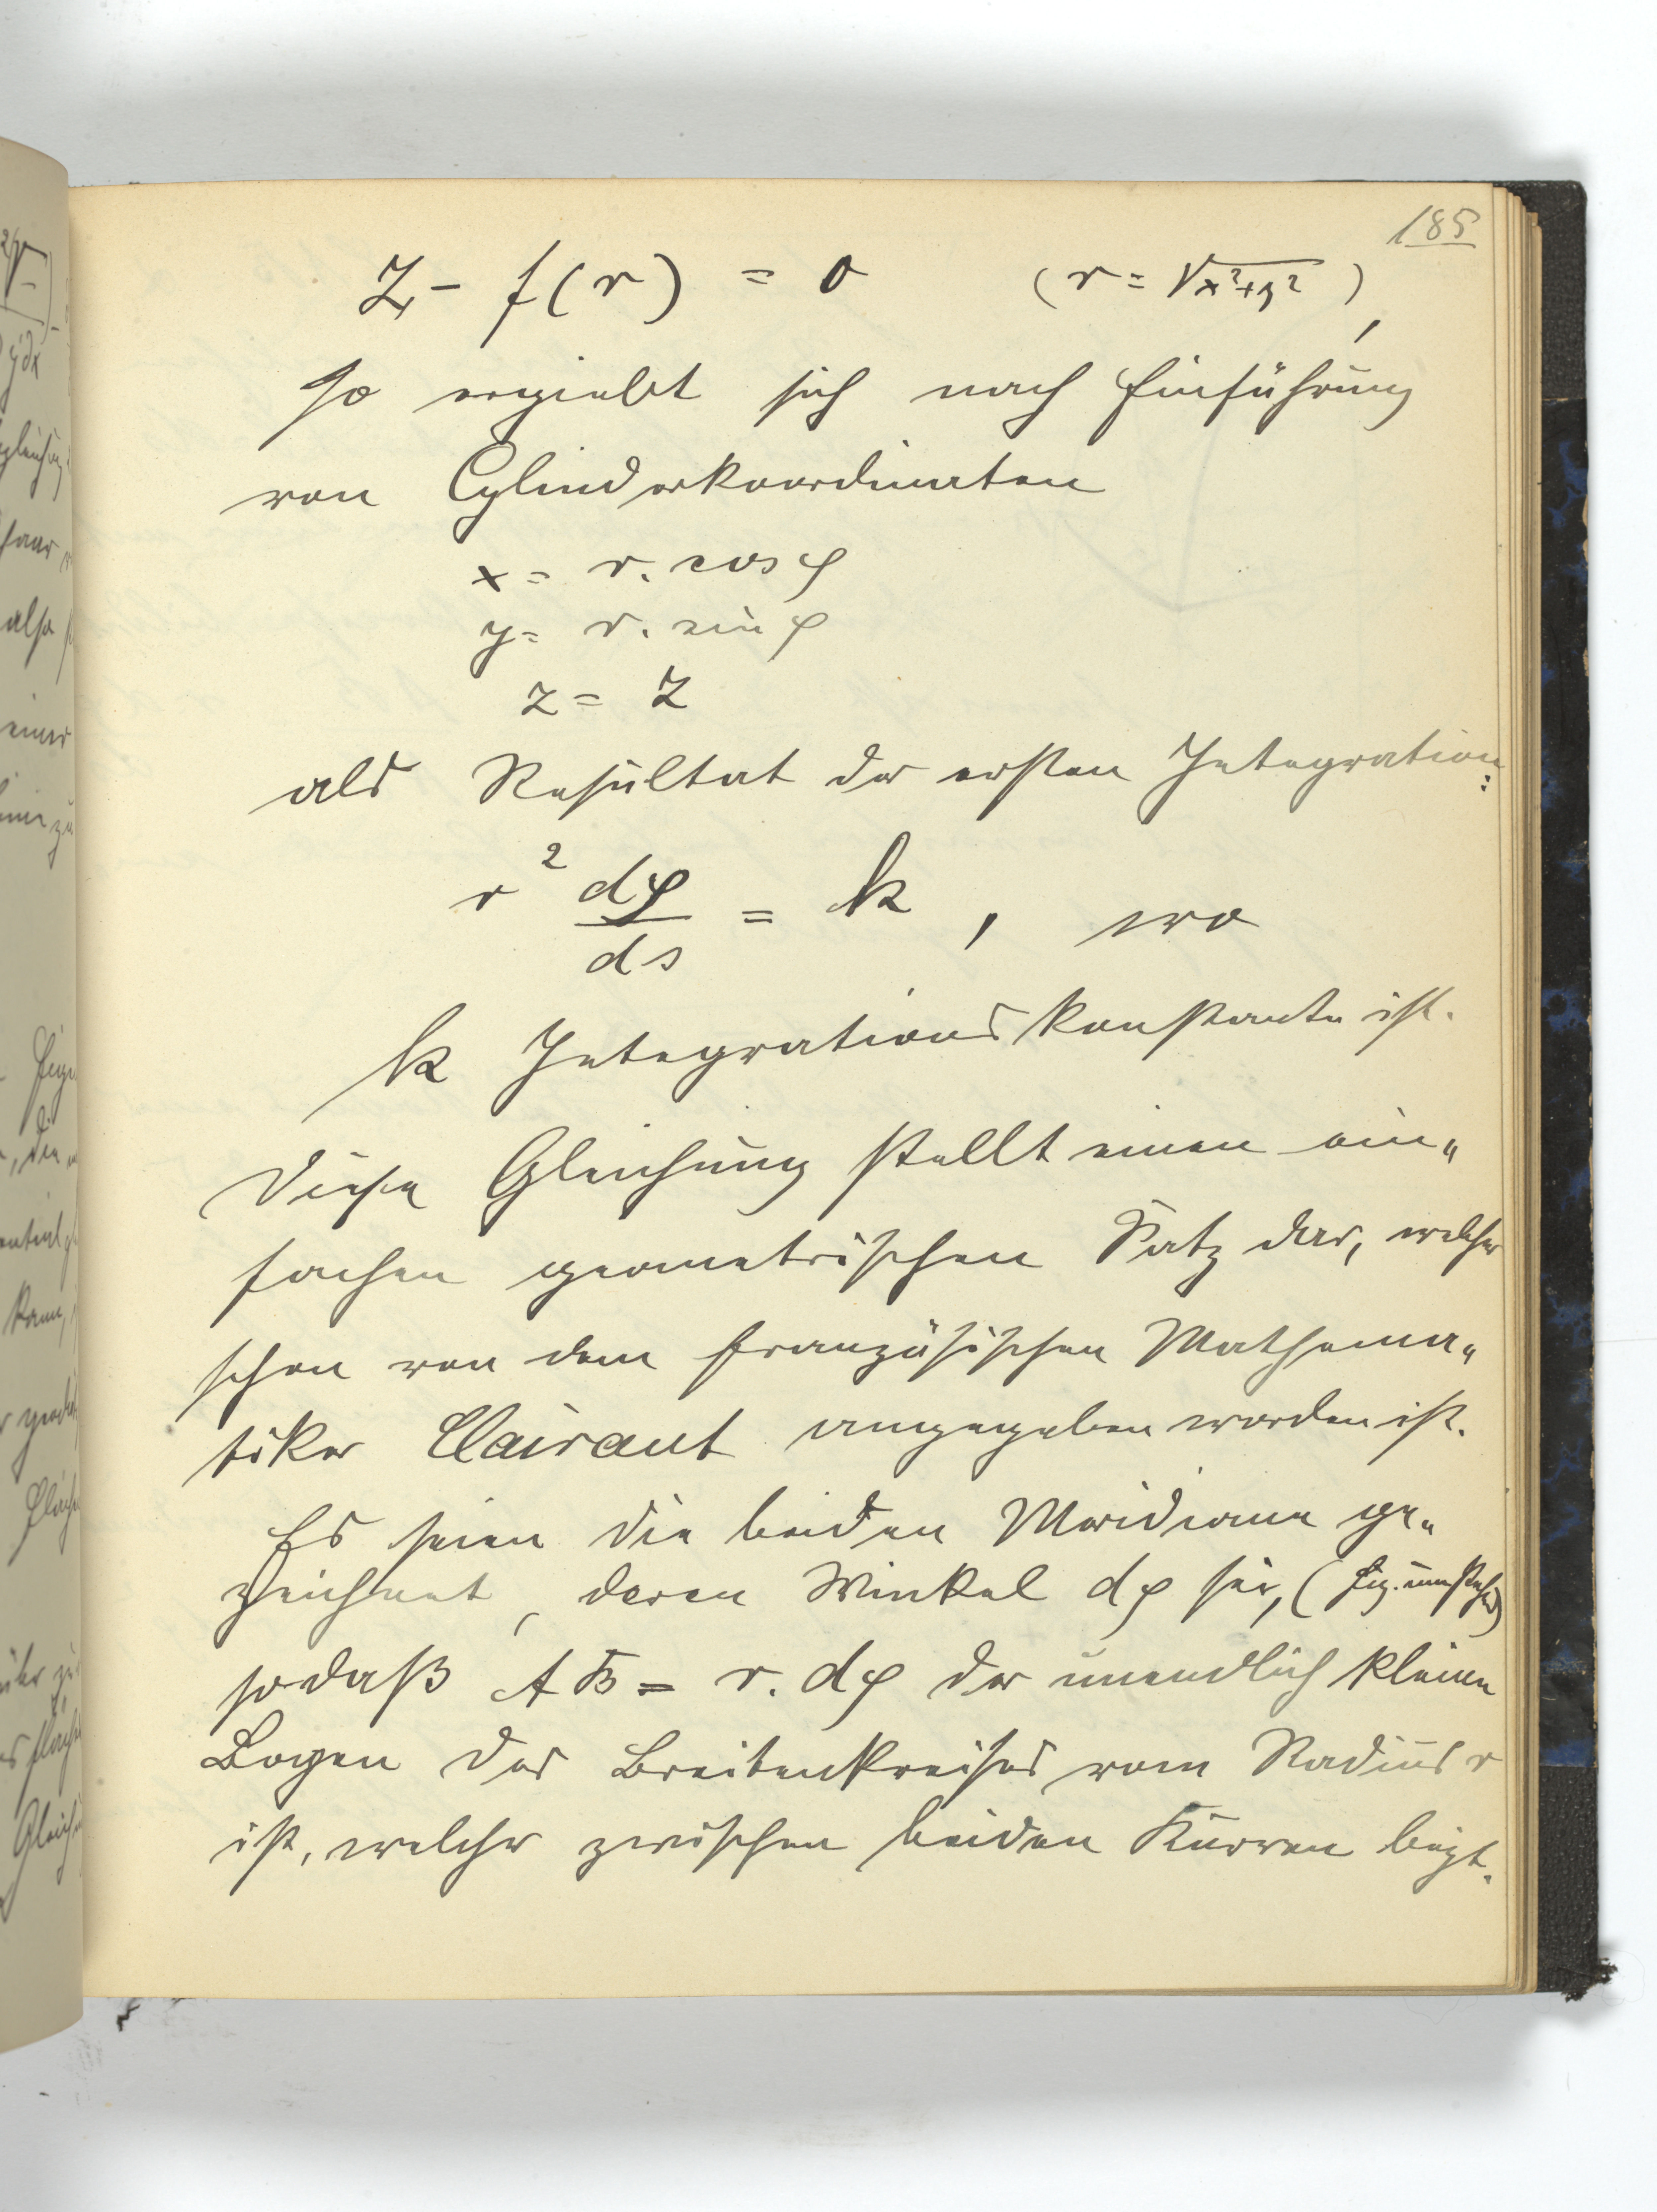 185
z - f(r) = 0 (r = √x²+y²),
so ergiebt sich nach Einführung
von Cylinderkoordinaten
x = r. cos φ
y = r. sin φ
z = z
als Resultat der ersten Integration:
r² dφ/ds = k, wo
k Integrationskonstante ist.
Diese Gleichung stellt einen ein„
fachen geometrischen Satz dar, welcher
schon von dem französischen Mathema„
tiker Clairaut angegeben worden ist.
Es seien die beiden Meridiane ge„
zeichnet, deren Winkel dφ sei, (Fig. umstehd)
sodaß AB = r. dφ der unendlich kleine
Bogen des Breitenkreises vom Radius r
ist, welcher zwischen beiden Kurven liegt.